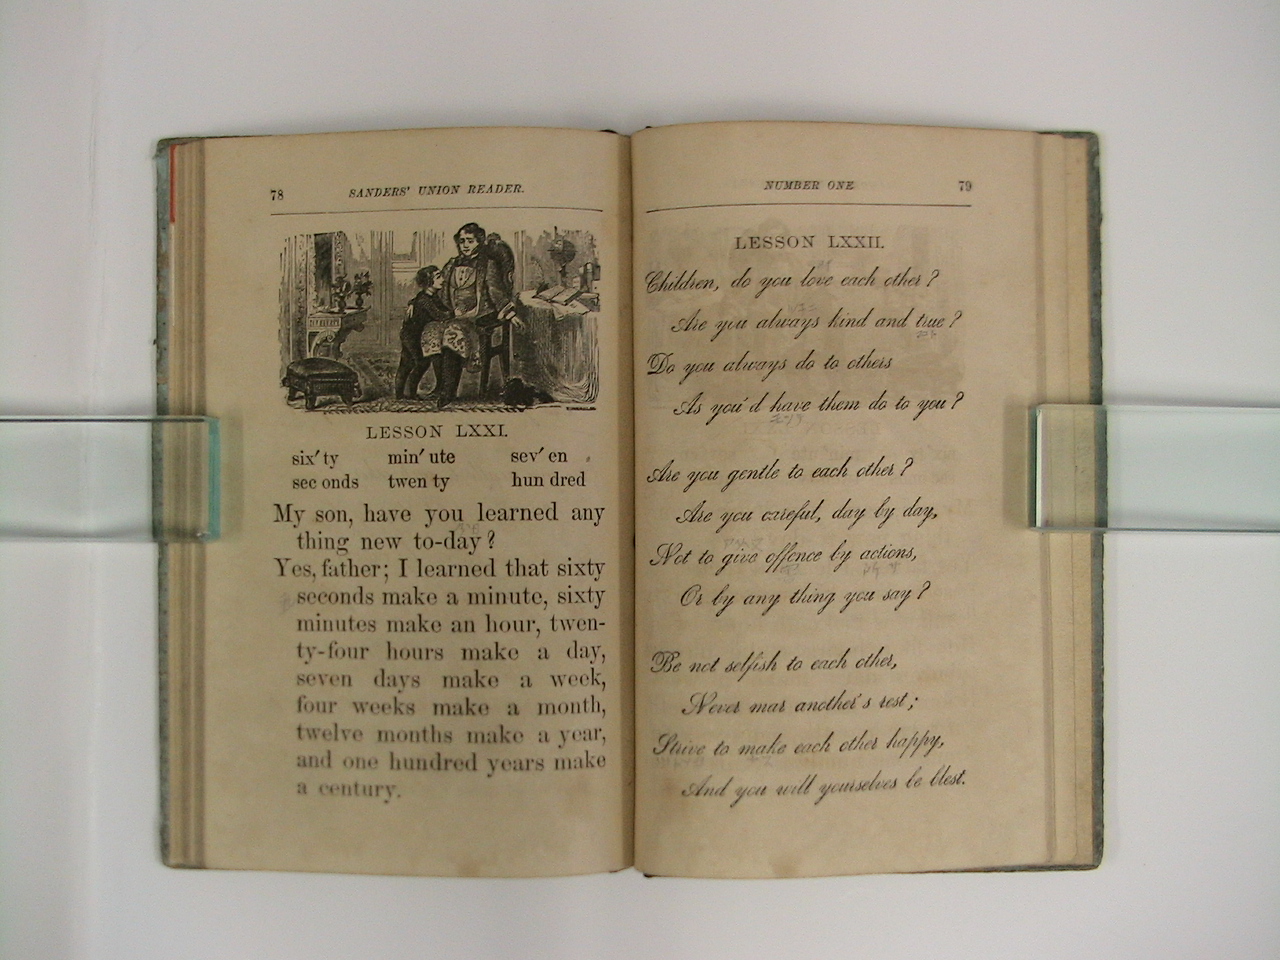 78
SANDERS' UNION READER.
LESSON LXXI.
six′ ty min′ ute sev′ en
sec onds twen ty hun dred
My son, have you learned any
thing new to-day?
Yes, father; I learned that sixty
seconds make a minute, sixty
minutes make an hour, twen-
ty-four hours make a day,
seven days make a week,
four weeks make a month,
twelve months make a year,
and one hundred years make
a century.
NUMBER ONE
79
LESSON LXXII.
Children, do you love each other?
Are you always kind and true?
Do you always do to others
As you'd have them do to you?
Are you gentle to each other?
Are you careful, day by day,
Not to give offence by actions,
Or by any thing you say?
Be not selfish to each other,
Never mar another's rest;
Strive to make each other happy,
And you will yourselves be blest.